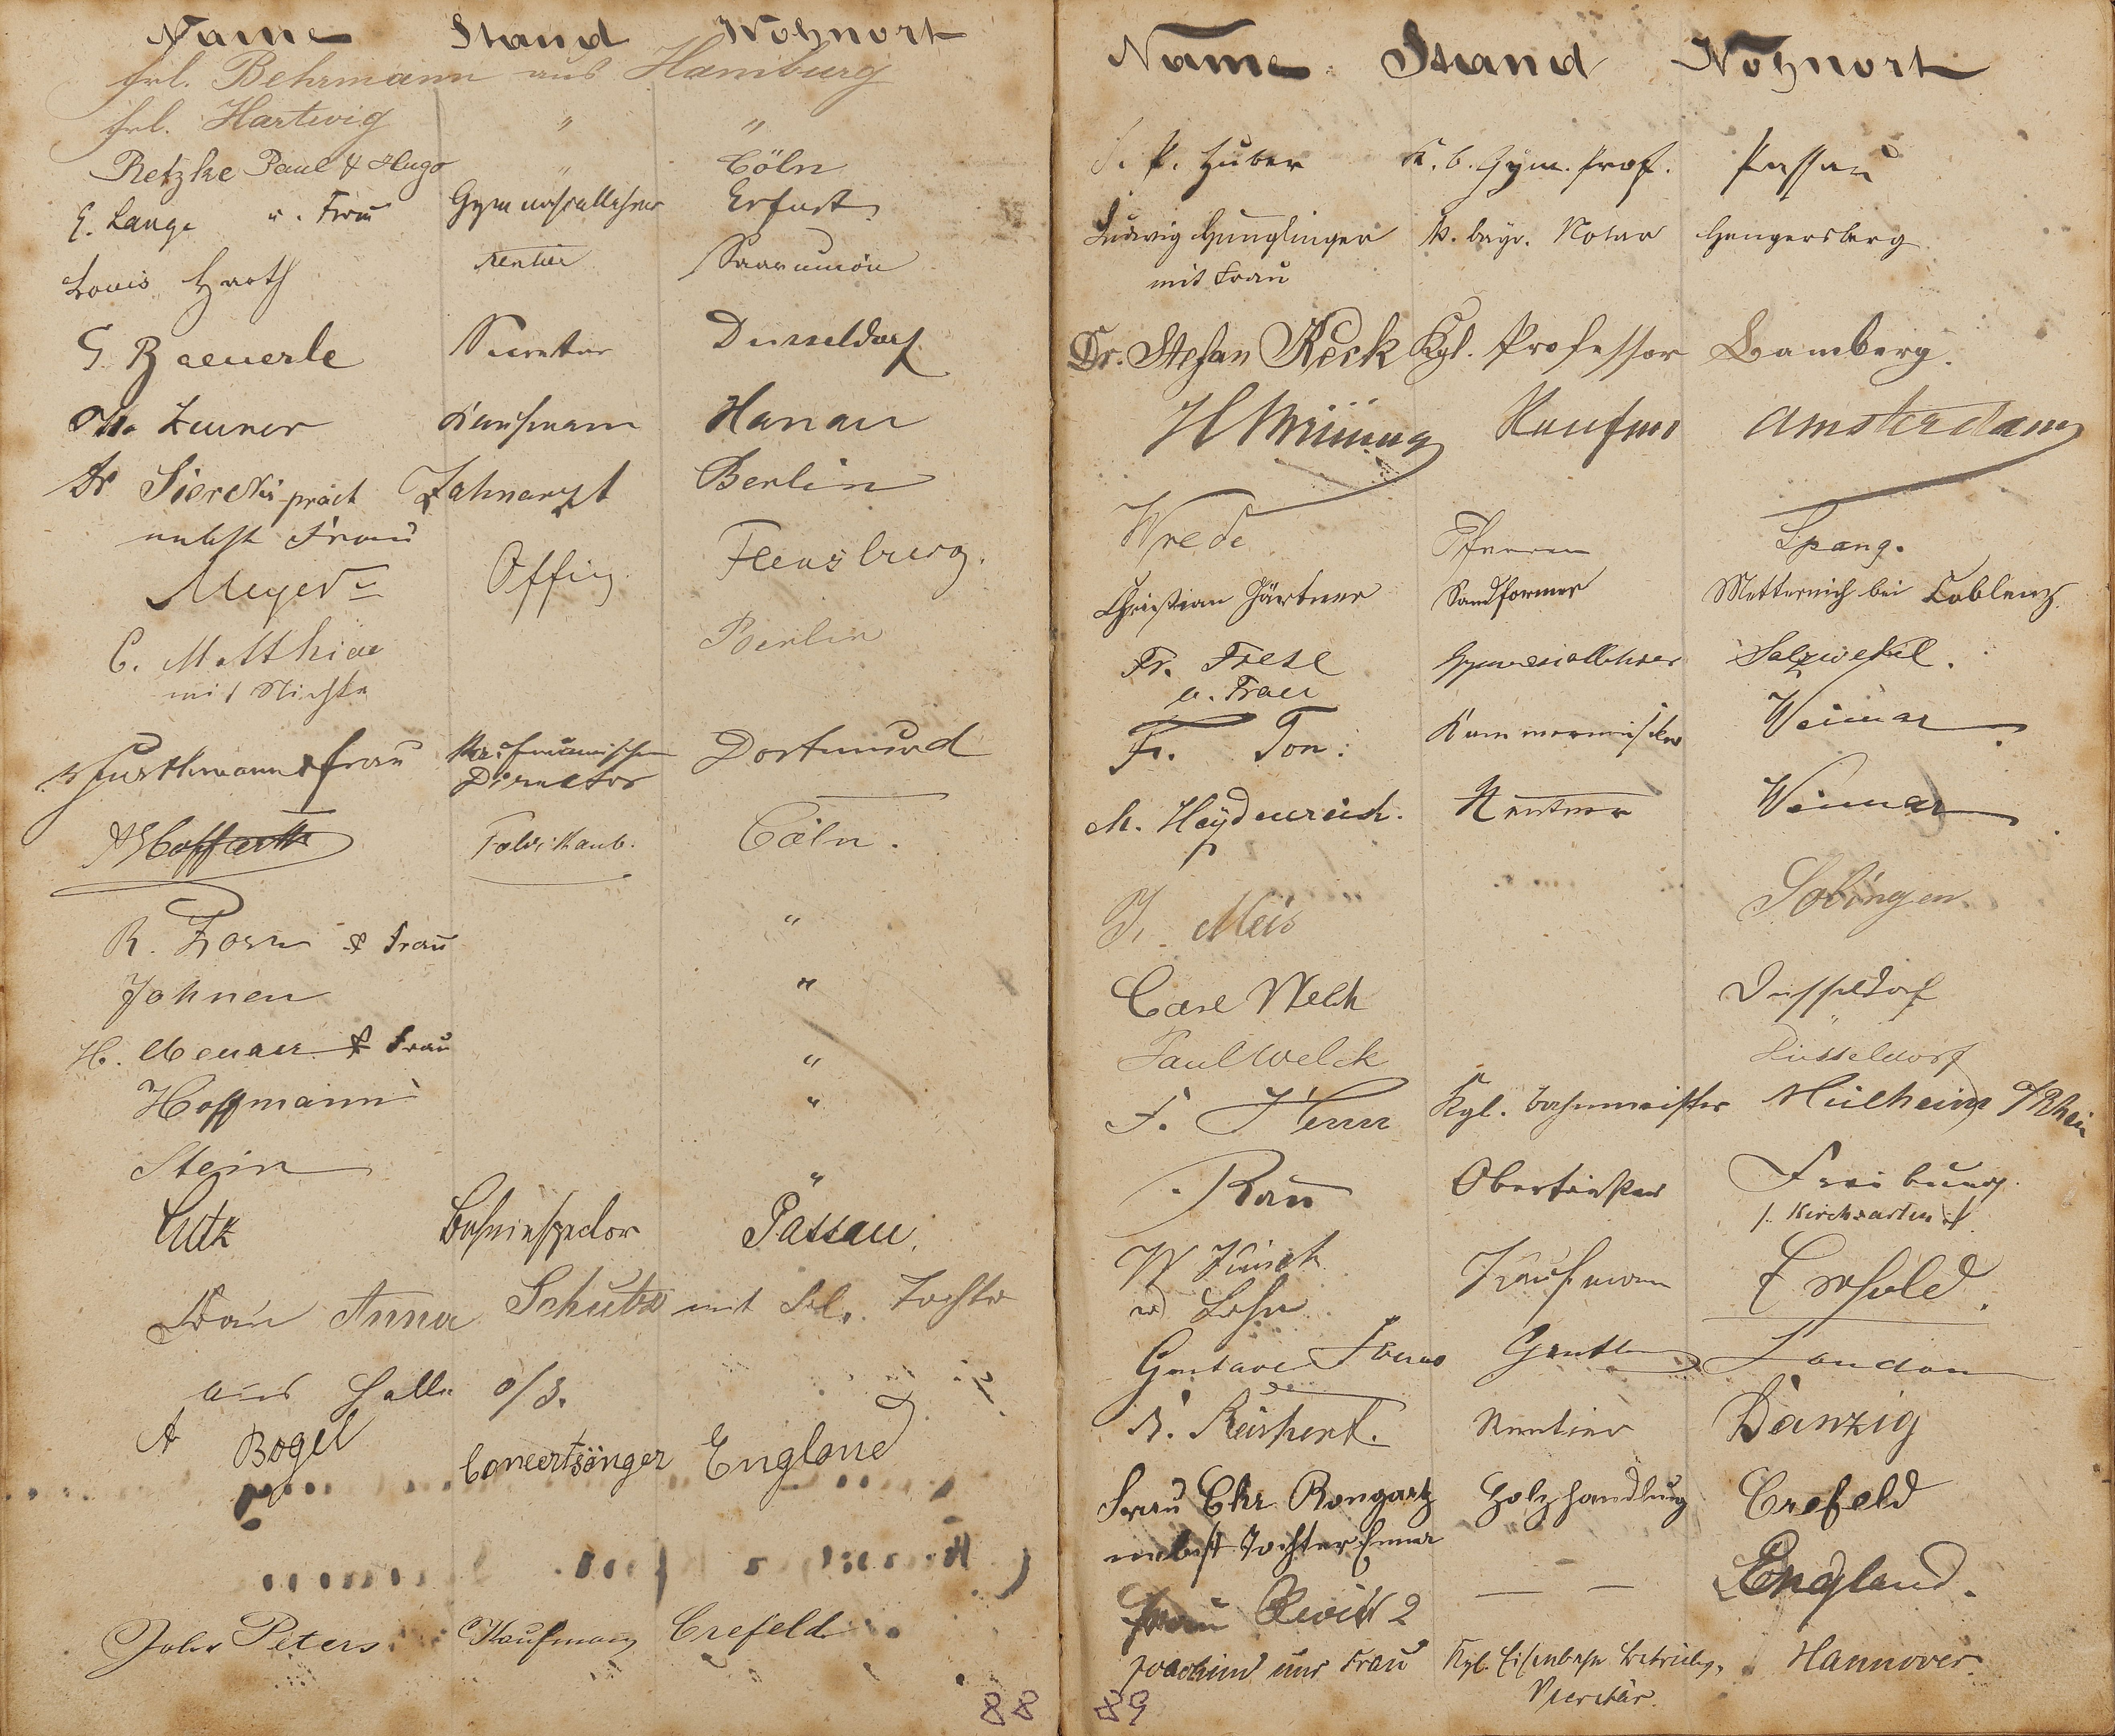 Name Stand Wohnort
Frl. Behrmann aus Hamburg
Frl. Hartwig " "
Retzke Paul & Hugo " Cöln
E. Lange u. Frau Gymnasiallehrer Erfurt
Louis Harth rentier Saarunion
G. Baeuerle Düsseldorf
Otto Kaufmann Hanau
Dr Sierckis prakt Zahnarzt Berlin
nebst Frau
Meyer Offiz. Flensburg.
C. Matthiae Berlin
mit Nichte
& Frau Kaufmännischer Dortmund
Director
Fabrikant. Cöln.
R. Zorn & Frau "
Johnen "
H. & Frau "
Hoffmann "
Stein "
Lutz Bahninspector Passau.
Frau Anna Schultz mit Frl. Tochter
aus Halle a/S.
A Bogel Concertsänger England
John Peters Kaufmann Crefeld
88
Name Stand Wohnort
J. P. Huber K. b. Gym. Prof. Passau
Ludwig Hunglinger K. bayr. Notar Hengersberg
mit Frau
Dr. Stefan Keck Kgl. Professor Bamberg.
Kaufm Amsterdam
Wrede Pfarrer Spang.
Christian Gärtner Sandformer Metternich bei Coblenz
Fr. Frese Gymnasiallehrer Salzwedel.
u. Frau
Fr. Ton. Kammermusiker Weimar
M. Heydenreich. Rentner Weimar
J. Meis Solingen
Carl Welck Düsseldorf
Paul Welck Düsseldorf
F. Henn Kgl. Bahnmeister Mülheim a/Rhein
Rau Oberförster Freiburg
/. Kirchzarten ./.
W Kaufmann Crefeld.
u Sohn
Gustave London
Reichert. Rentier Danzig
Frau Chr. Bongartz Holzhandlung Crefeld
nebst Tochter Emma
Frau — — England.
Joachim und Frau Kgl. Eisenbahn Betriebs- Hannover.
Secretär.
89